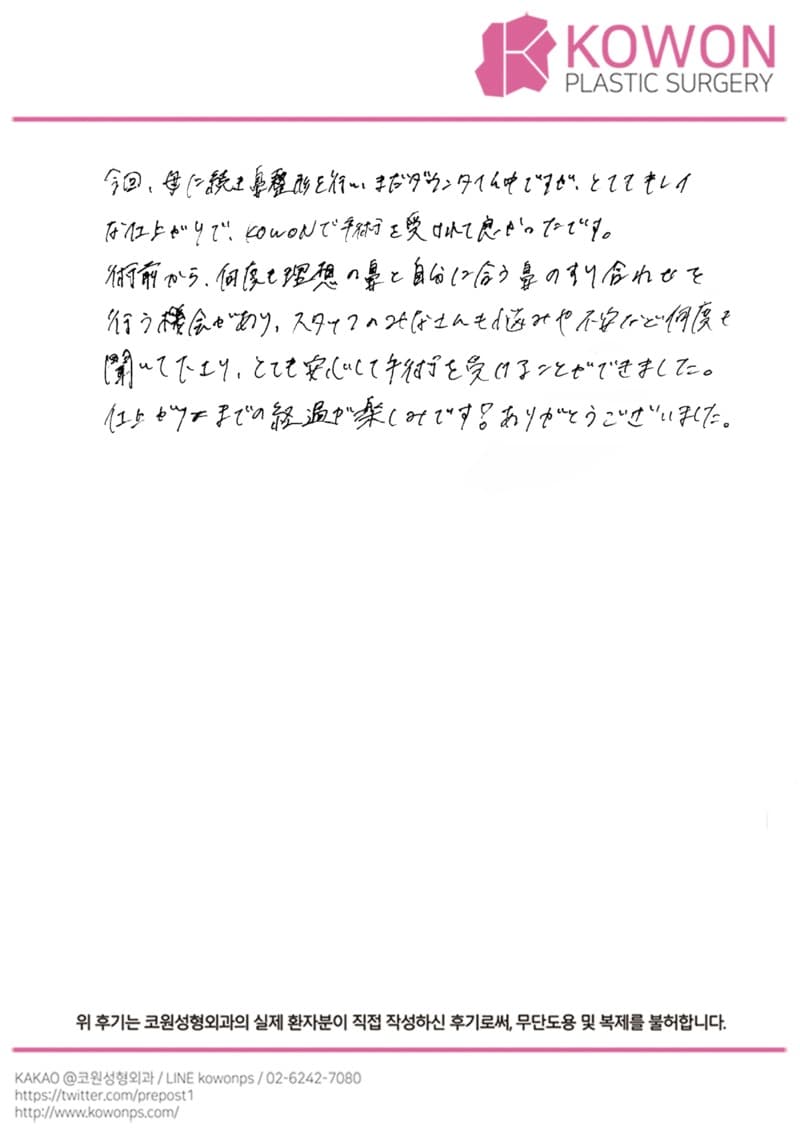 KOWON
PLASTIC SURGERY
今回、母に続き鼻整形を行い、まだダウンタイム中ですが、とてもキレイ
な仕上がりで、KOWONで手術を受けれて良かったです。
術前から、何度も理想の鼻と自分に合う鼻のすり合わせを
行う機会があり、スタッフのみなさんも悩みや不安など何度も
聞いて下さり、とても安心して手術を受けることができました。
仕上がりまでの経過が楽しみです! ありがとうございました。
위 후기는 코원성형외과의 실제 환자분이 직접 작성하신 후기로써, 무단도용 및 복제를 불허합니다.
KAKAO @코원성형외과 / LINE kowonps / 02-6242-7080
https://twitter.com/prepost1
http://www.kowonps.com/